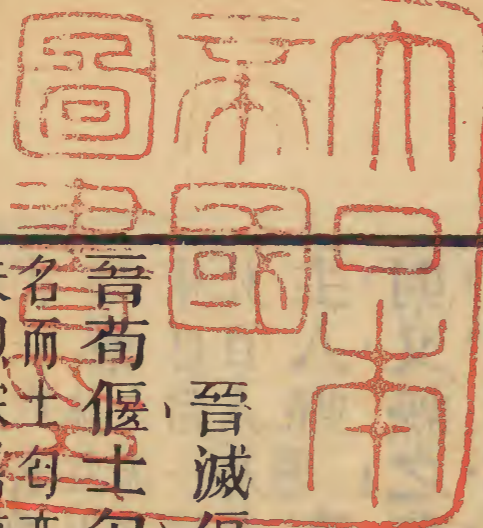 大日本
帝國
圖書
晉滅
晉荀偃士
名而士匄